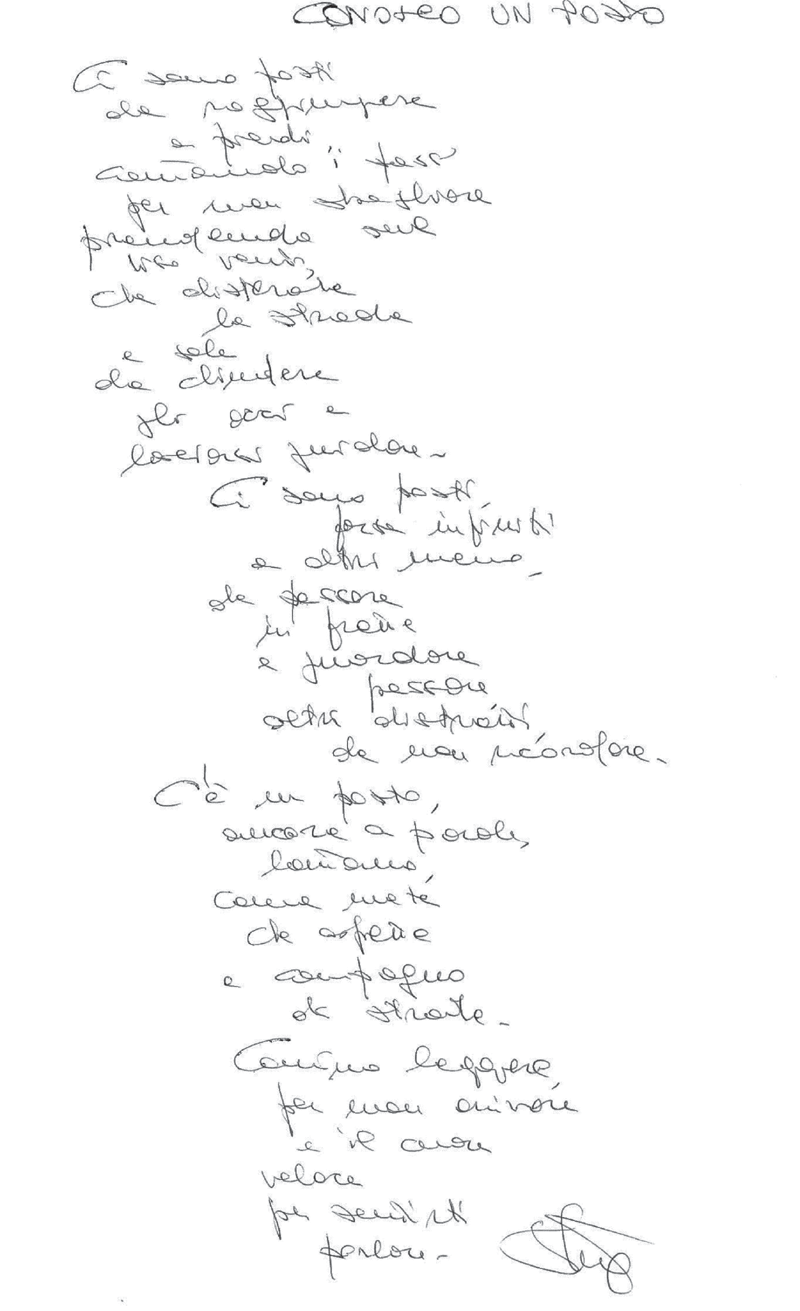 CONOSCO UN POSTO
Ci sono posti
da raggiungere
a piedi,
contando i passi
per non
prendendo sul
viso vento,
che
la strada
e sole
da chiudere
gli occhi e
lasciarsi guidare.
Ci sono posti,
forse infiniti
e altri meno,
da passare
in fretta
e guardare
passare
oltre distratti
da non ricordare.
C'è un posto,
ancora a parole,
lontano,
come meta
che aspetta
e compagno
di strade.
Cammino leggera
per non arrivare
e il cuore
veloce
per sentirti
parlare.